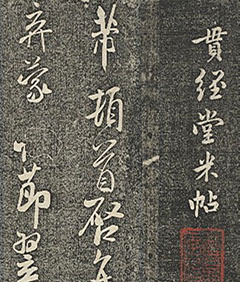 貫經堂米帖
芾頓首啓
弃蒙
節翌